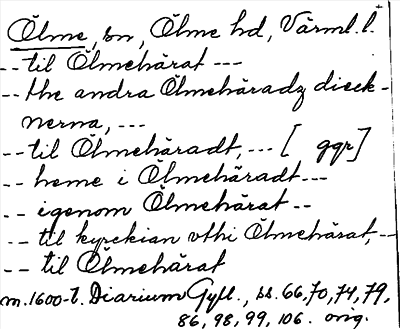 Ölme, sn, Ölme hd, Värml. l.
-- til Ölmehärat ---
-- the andra Ölmeharadz dieck-
nerna, ---
-- til Ölmeharadt, --- [ ggr]
-- heme i Ölmeharadt ---
-- igenom Ölmehärat --
-- til kyrckian vthi Ölmehärat, --
-- til Ölmehärat
m. 1600-t. Diarium Gyll., ss. 66, 70, 74, 79,
86, 98, 99, 106. orig.